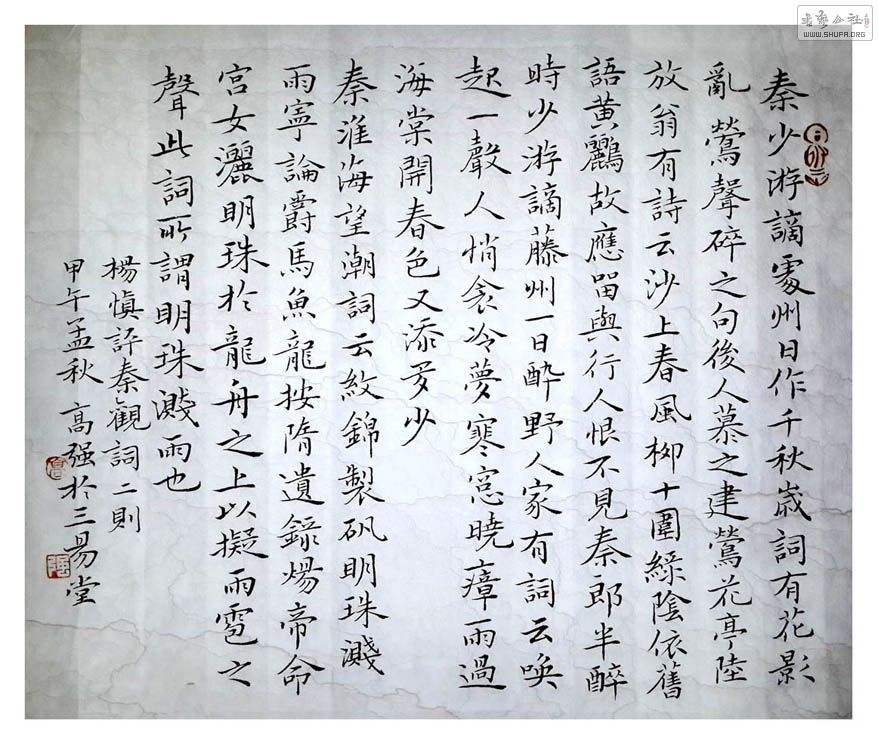 秦少游謫處州日作千秋歲詞有花影
亂鶯聲碎之句後人慕之建鶯花亭陸
放翁有詩云沙上春風柳十圍綠陰依舊
語黃鸝故應留與行人恨不見秦郎半醉
時少游謫藤州一日醉野人家有詞云喚
起一聲人悄衾冷夢寒窓曉瘴雨過
海棠開春色又添多少
秦淮海望潮詞云紋錦製帆明珠濺
雨寧論爵馬魚龍按隋遺錄煬帝命
宮女灑明珠於龍舟之上以擬雨雹之
聲此詞所謂明珠濺雨也
楊慎評秦觀詞二則
甲午孟秋高强於三易堂
書藝公社
WWW.SHUFA.ORG